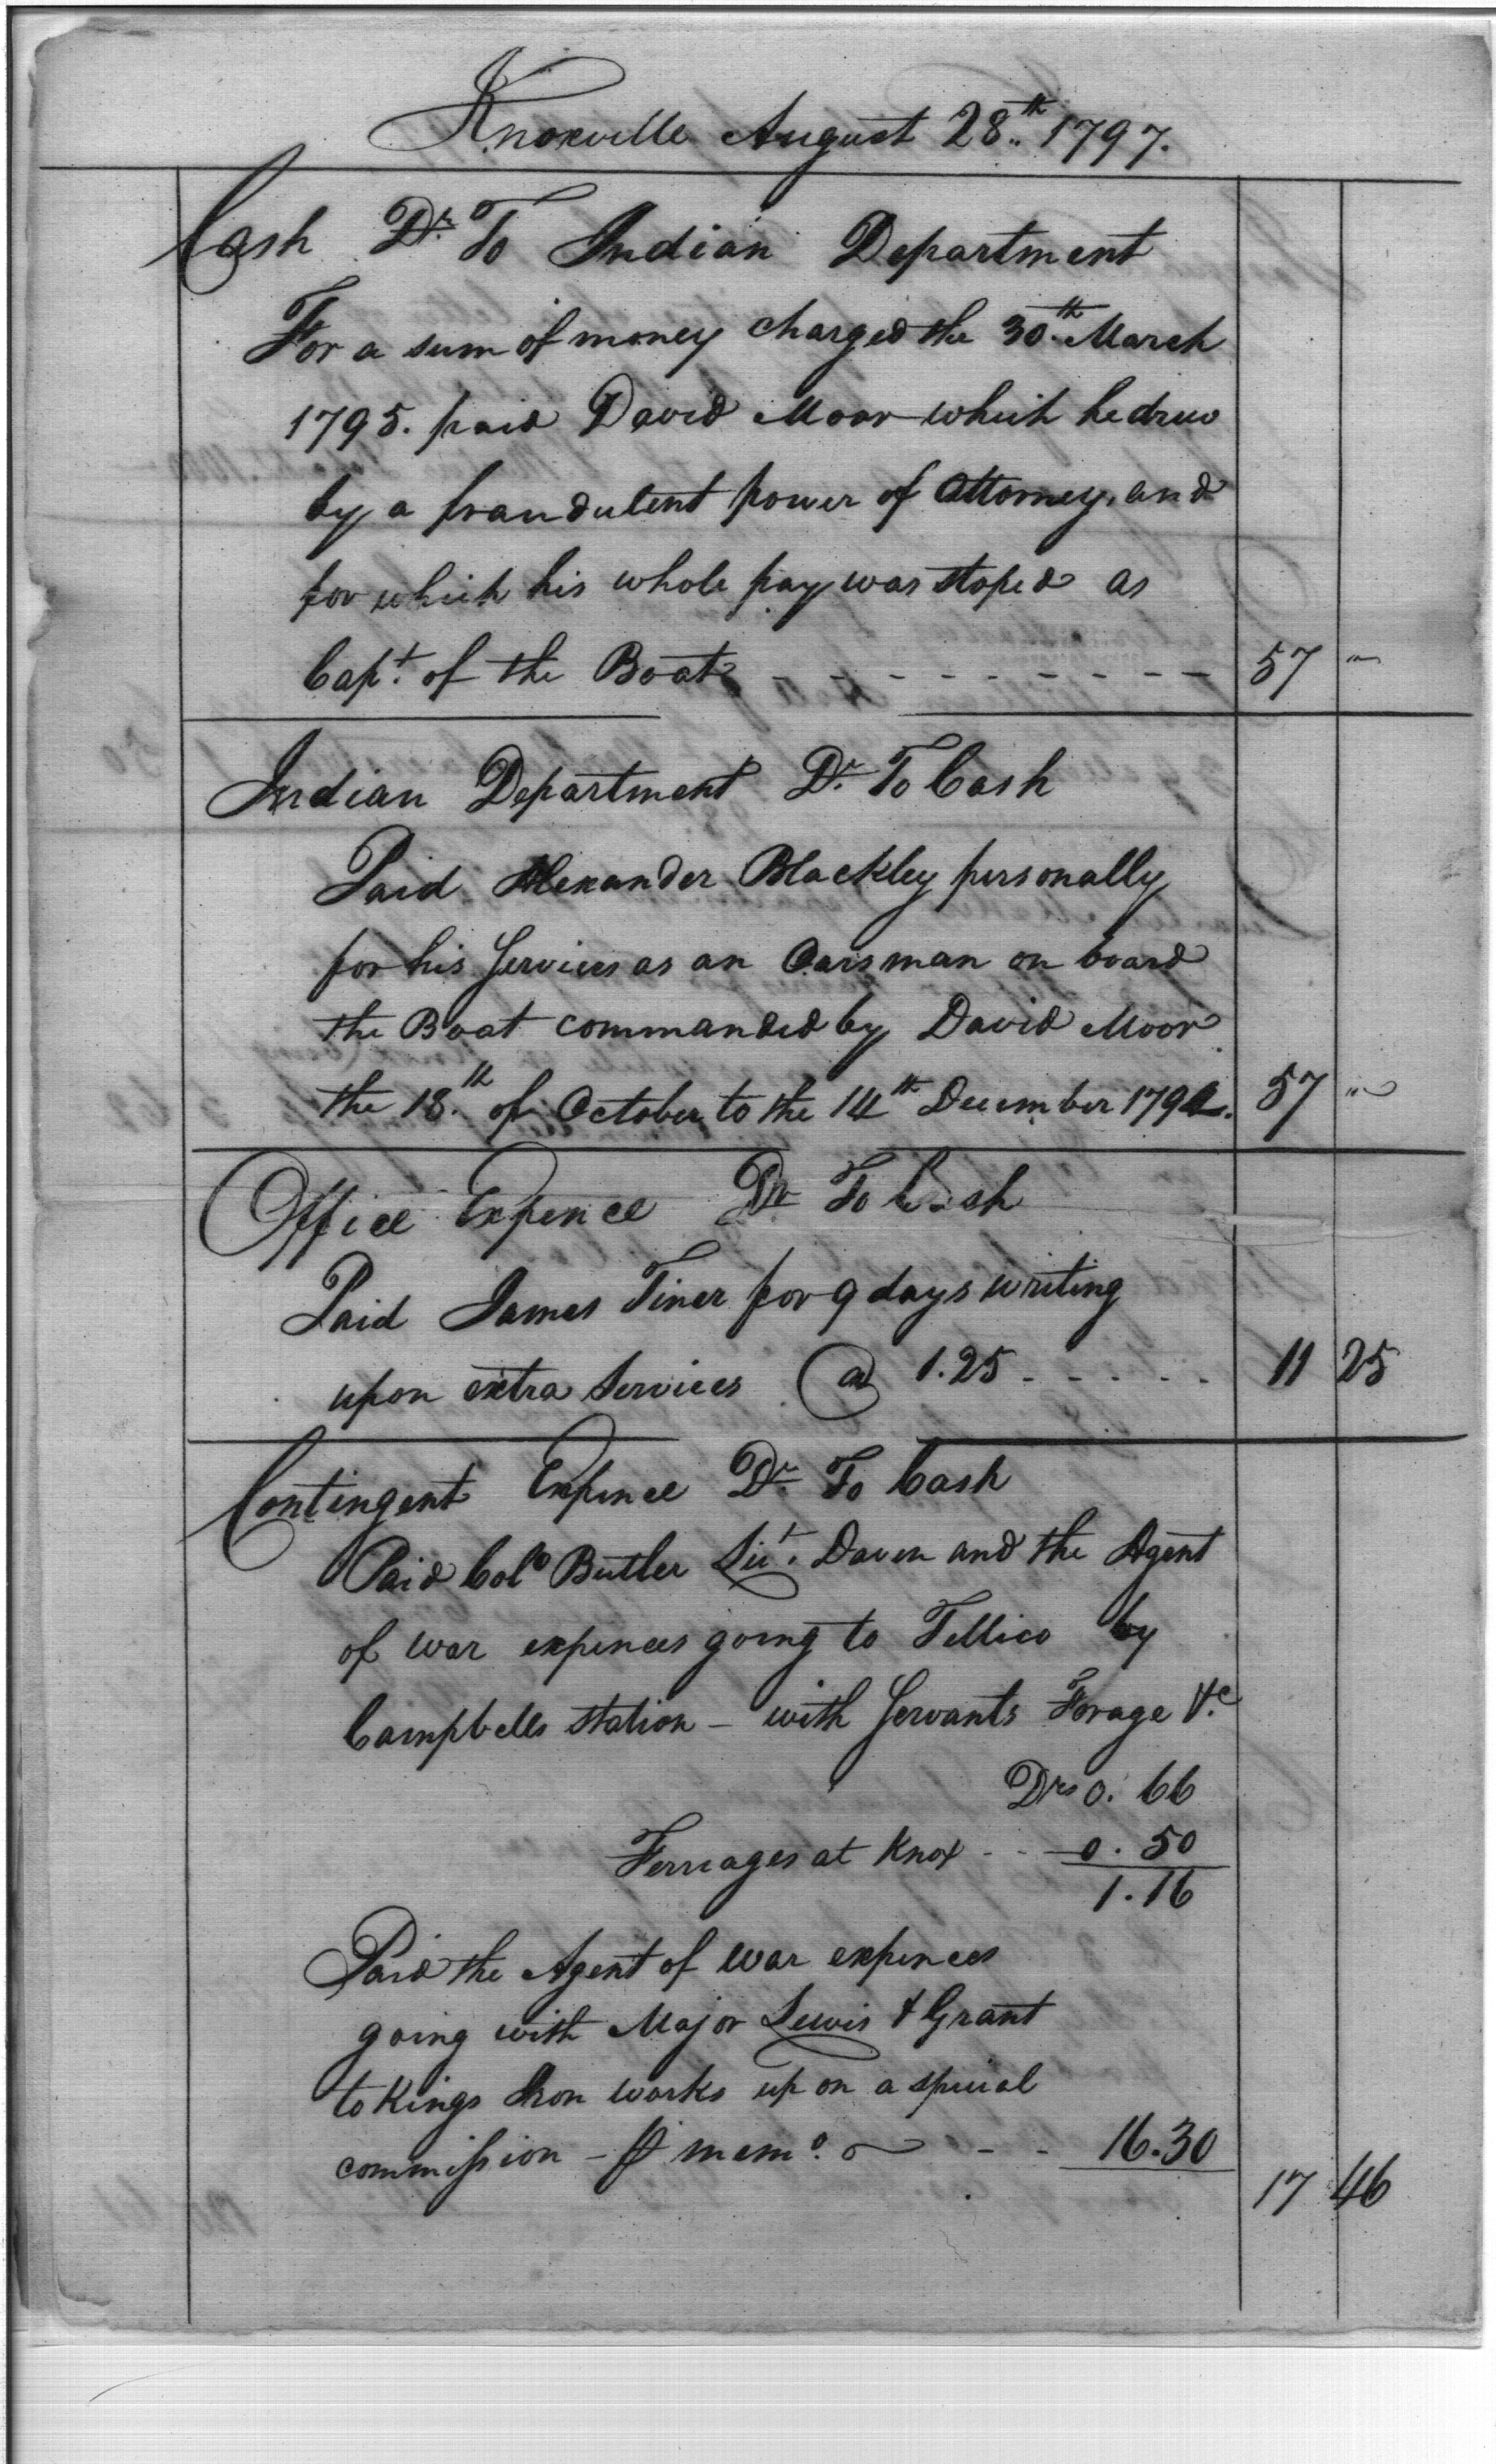 Knoxville August 28th 1797.
Cash Dr. To Indian Department
For a sum of money charged the 30th March
1795. paid David Moor which he drew
by a fraudulent power of Attorney, and
for which his whole pay was stoped as
Capt. of the Boat - - - - - - - - - 57 "
Indian Department Dr. To Cash
Paid Alexander Blackley personally
for his Services as an Oarsman on board
the Boat commanded by David Moor
the 18th of October to the 14th December 1794. 57 "
Office Expence Dr To Cash
Paid James Tiner for 9 days writing
upon extra Services @ 1.25 - - - - - 11 25
Contingent Expence Dr. To Cash
Paid Colo Butler Liut. Daven and the Agent
of war expences going to Tellico by
Campbells station - with Servants Forage &c
Drs 0. 66
Ferriages at Knox - - 0. 50
1.16
Paid the Agent of war expences
going with Major Lewis & Grant
to Kings Iron works upon a special
commission - ⅌ memo. - - 16.30
17 46